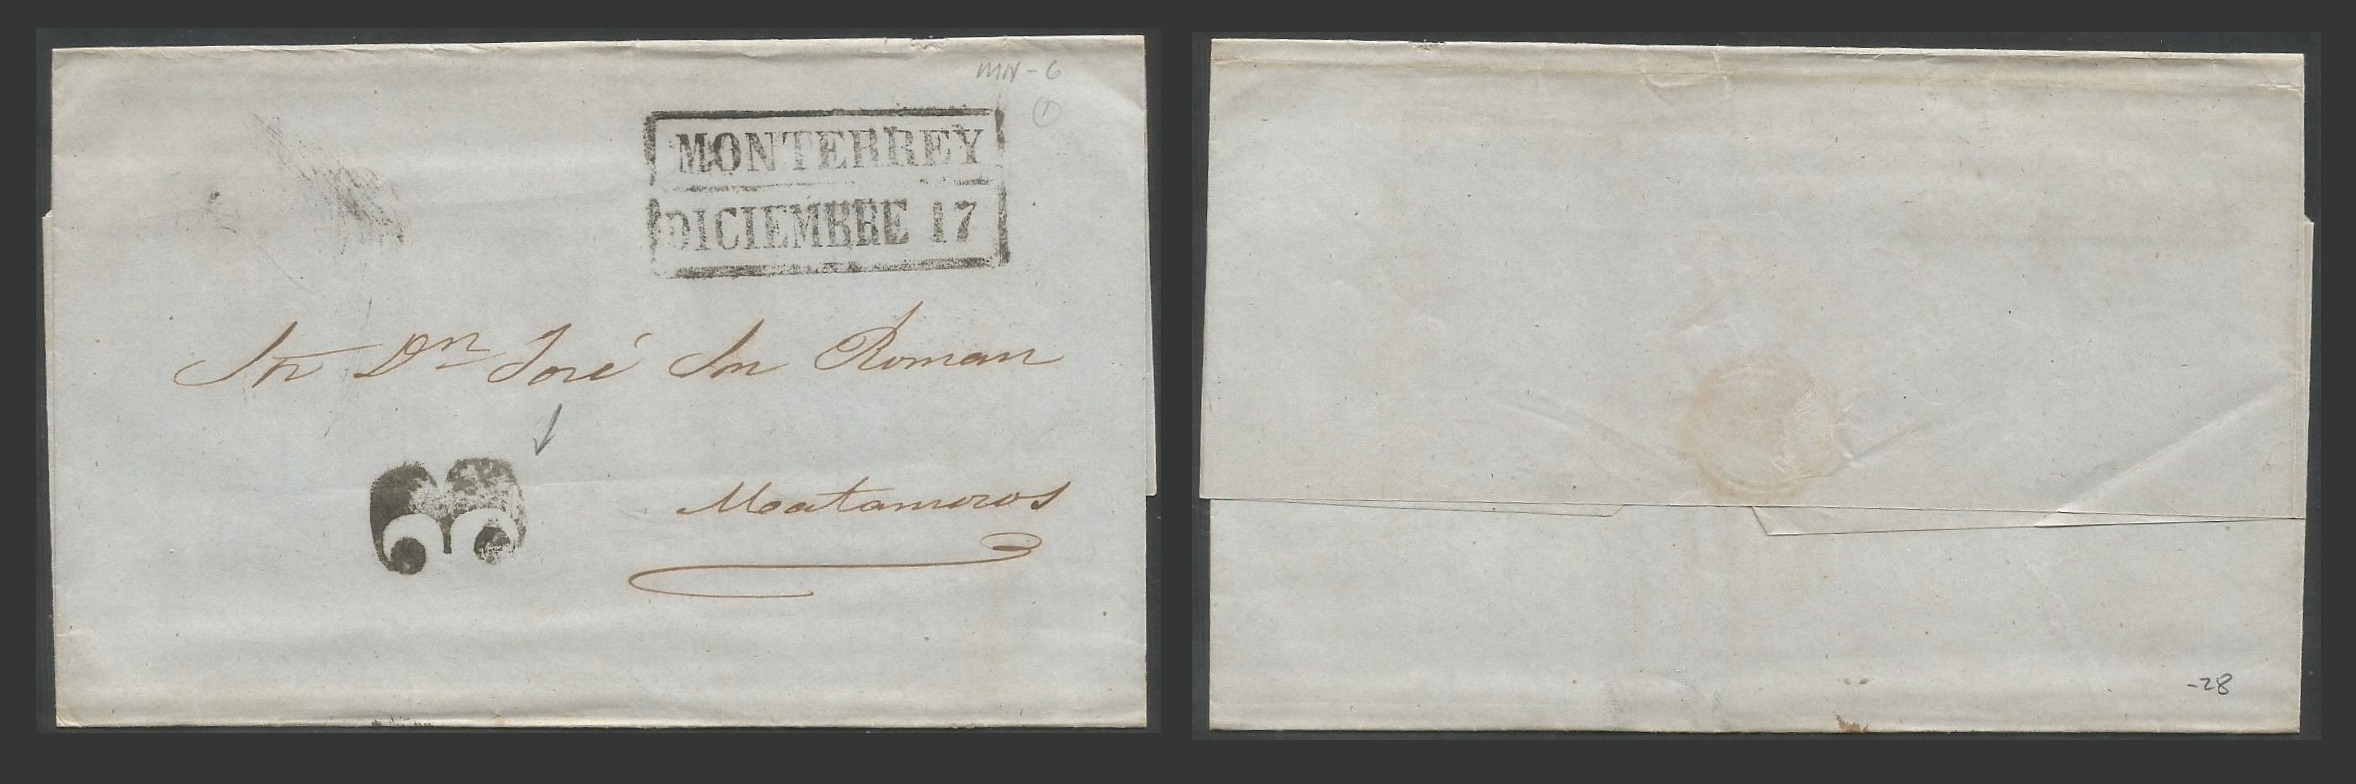 MN-6
1
MONTERREY
DICIEMBRE 17
Sr Dn José Sn Roman
Matamoros
-28